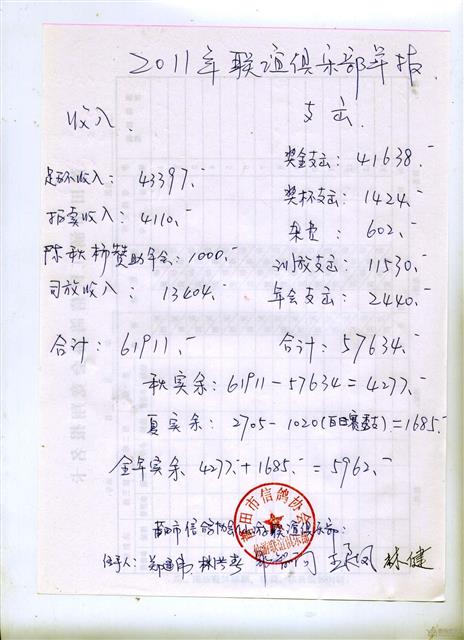 2011年联谊俱乐部年报
收入 支出
足环收入: 43397.- 奖金支出: 41638.-
拍卖收入: 4110.- 奖杯支出: 1424.-
杂费: 602.-
陈秋柿赞助年会: 1000.- 训放支出: 11530.-
司放收入: 13404.- 年会支出: 2440.-
合计: 61911.- 合计: 57634.-
秋实余: 61911-57634=4277.-
夏实余: 2705-1020(百日赛)=1685.-
全年实余 4277.+1685.-=5962.-
莆田市信鸽协会
莆田市信鸽协会联谊俱乐部:
经手人: 林健